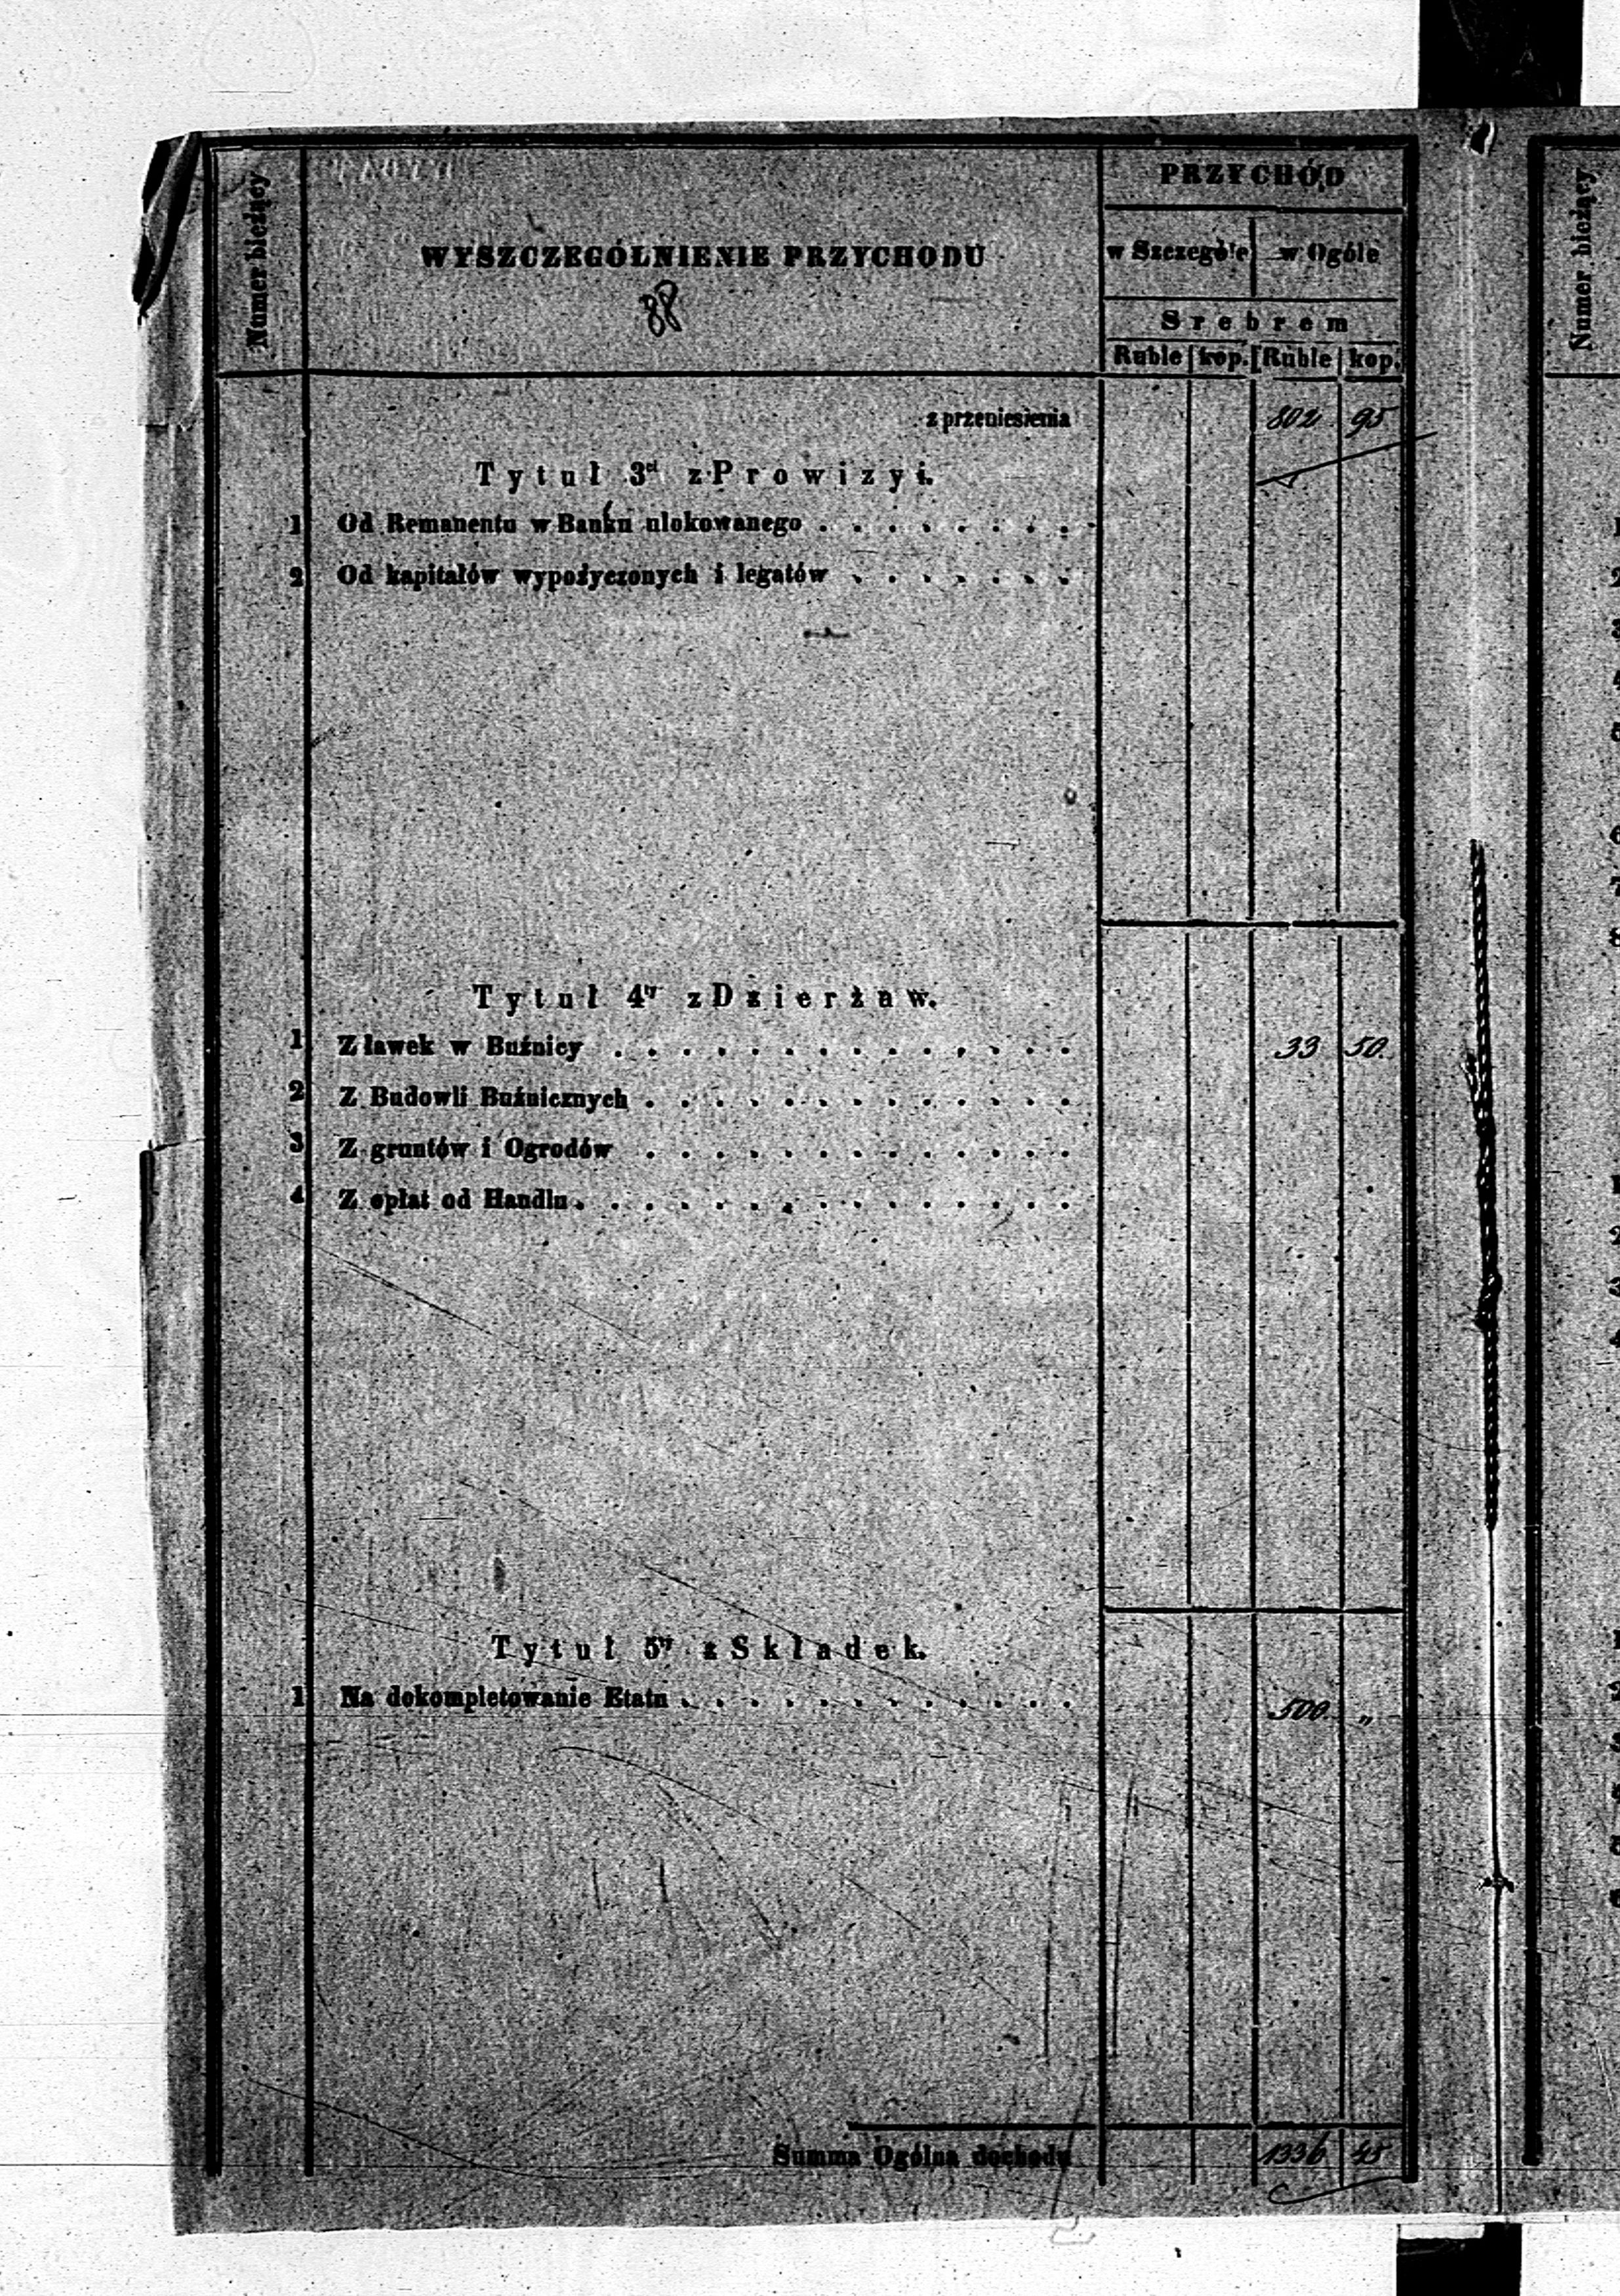 Numer bieżący
WYSZCZEGÓLNIENIE PRZYCHODU
88
PRZYCHÓD
w Szczególe w Ogóle
Srebrem
Ruble kop. Ruble kop.
z przeniesienia 802 95
Tytuł 3ci z Prowizyi.
1 Od Remanentu w Banku ulokowanego . . . . . . . .
2 Od kapitałów wypożyczonych i legatów . . . . . . .
Tytuł 4ty z Dzierżaw.
1 Z ławek w Buźnicy . . . . . . . . . . . . . . 33 50
2 Z Budowli Buźnicznych . . . . . . . . . . . . .
3 Z gruntów i Ogrodów . . . . . . . . . . . . .
4 Z opłat od Handlu . . . . . . . . . . . . . . .
Tytuł 5ty z Składek.
1 Na dokompletowanie Etatu . . . . . . . . . . . . 500 „
Summa Ogólna dochodu 1336 45
Numer bieżący